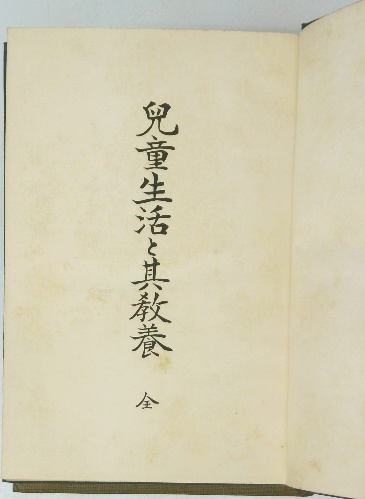 兒童生活と其敎養
全